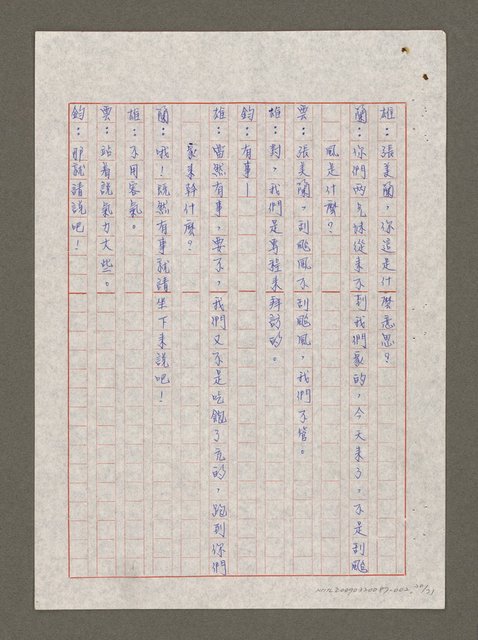 雄：張美蘭，你這是什麼意思？
蘭：你們兩兄妹從來不到我們家的，今天來了，不是刮颱
風是什麼？
雲：張美蘭，刮颱風不刮颱風，我們不管。
雄：對，我們是專程來拜訪的。
鈞：有事—
雄：當然有事，要不，我們又不是吃飽了沒的，跑到你們
家來幹什麼？
蘭：哦！既然有事就請坐下來說吧！
雄：不用客氣。
雲：站着說氣力大些。
鈞：那就請說吧！